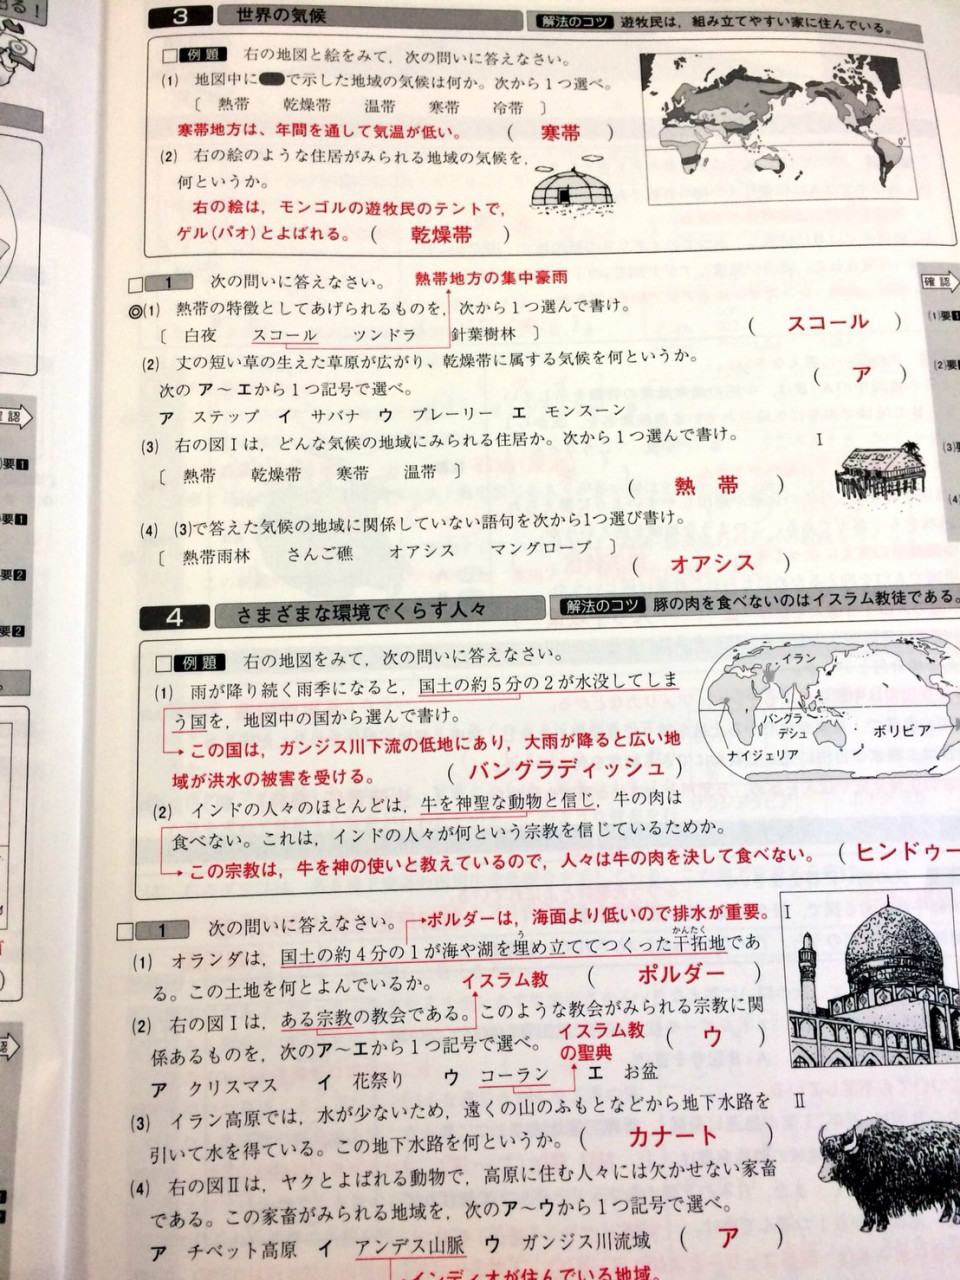 3 世界の気候
解法のコツ 遊牧民は，組み立てやすい家に住んでいる。
例題 右の地図と絵をみて，次の問いに答えなさい。
(1) 地図中にで示した地域の気候は何か。次から1つ選べ。
〔 熱帯 乾燥帯 温帯 寒帯 冷帯 〕
寒帯地方は、年間を通して気温が低い。 ( 寒帯 )
0°
(2) 右の絵のような住居がみられる地域の気候を，
何というか。
右の絵は，モンゴルの遊牧民のテントで，
ゲル(パオ)とよばれる。 ( 乾燥帯 )
1 次の問いに答えなさい。
熱帯地方の集中豪雨
◎(1) 熱帯の特徴としてあげられるものを，次から1つ選んで書け。
〔 白夜 スコール ツンドラ 針葉樹林 〕
( スコール )
(2) 丈の短い草の生えた草原が広がり、乾燥帯に属する気候を何というか。
次のア〜エから1つ記号で選べ。
( ア )
ア ステップ イ サバナ ウ プレーリー エ モンスーン
(3) 右の図Ⅰは，どんな気候の地域にみられる住居か。次から1つ選んで書け。
Ⅰ
〔 熱帯 乾燥帯 寒帯 温帯 〕
( 熱帯 )
(4) (3)で答えた気候の地域に関係していない語句を次から1つ選び書け。
〔 熱帯雨林 さんご礁 オアシス マングローブ 〕
( オアシス )
確認
(1)要1
(2)要
(3)要
(4)
4 さまざまな環境でくらす人々
解法のコツ 豚の肉を食べないのはイスラム教徒である。
例題 右の地図をみて，次の問いに答えなさい。
(1) 雨が降り続く雨季になると，国土の約5分の2が水没してしま
う国を，地図中の国から選んで書け。
この国は，ガンジス川下流の低地にあり，大雨が降ると広い地
域が洪水の被害を受ける。 ( バングラディッシュ )
イラン
バングラ
デシュ
ボリビア
ナイジェリア
(2) インドの人々のほとんどは，牛を神聖な動物と信じ，牛の肉は
食べない。これは，インドの人々が何という宗教を信じているためか。
この宗教は，牛を神の使いと教えているので，人々は牛の肉を決して食べない。 ( ヒンドゥー
1 次の問いに答えなさい。
ポルダーは，海面より低いので排水が重要。
Ⅰ
かんたく
う
(1) オランダは，国土の約4分の1が海や湖を埋め立ててつくった干拓地であ
る。この土地を何とよんでいるか。 ( ポルダー )
イスラム教
(2) 右の図Ⅰは，ある宗教の教会である。このような教会がみられる宗教に関
係あるものを，次のア〜エから1つ記号で選べ。 ( ウ )
イスラム教
の聖典
ア クリスマス イ 花祭り ウ コーラン エ お盆
(3) イラン高原では，水が少ないため，遠くの山のふもとなどから地下水路を
引いて水を得ている。この地下水路を何というか。 ( カナート )
Ⅱ
(4) 右の図Ⅱは，ヤクとよばれる動物で，高原に住む人々には欠かせない家畜
である。この家畜がみられる地域を，次のア〜ウから1つ記号で選べ。
ア チベット高原 イ アンデス山脈 ウ ガンジス川流域 ( ア )
インディオが住んでいる地域。